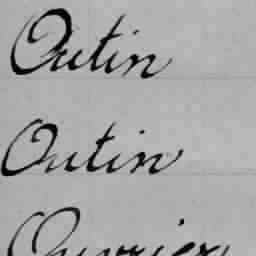 Outin
Outin
Ouvrier